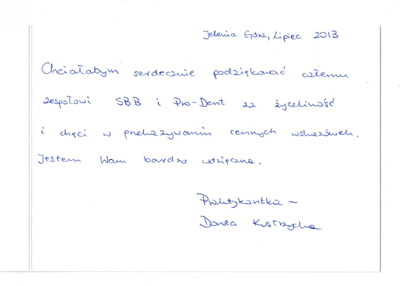 Jelenia Góra, Lipiec 2013
Chciałabym serdecznie podziękować całemu
zespołowi SBB i Pro-Dent za życzliwość
i chęci w przekazywaniu cennych wskazówek.
Jestem Wam bardzo wdzięczna.
Praktykantka –
Dorota